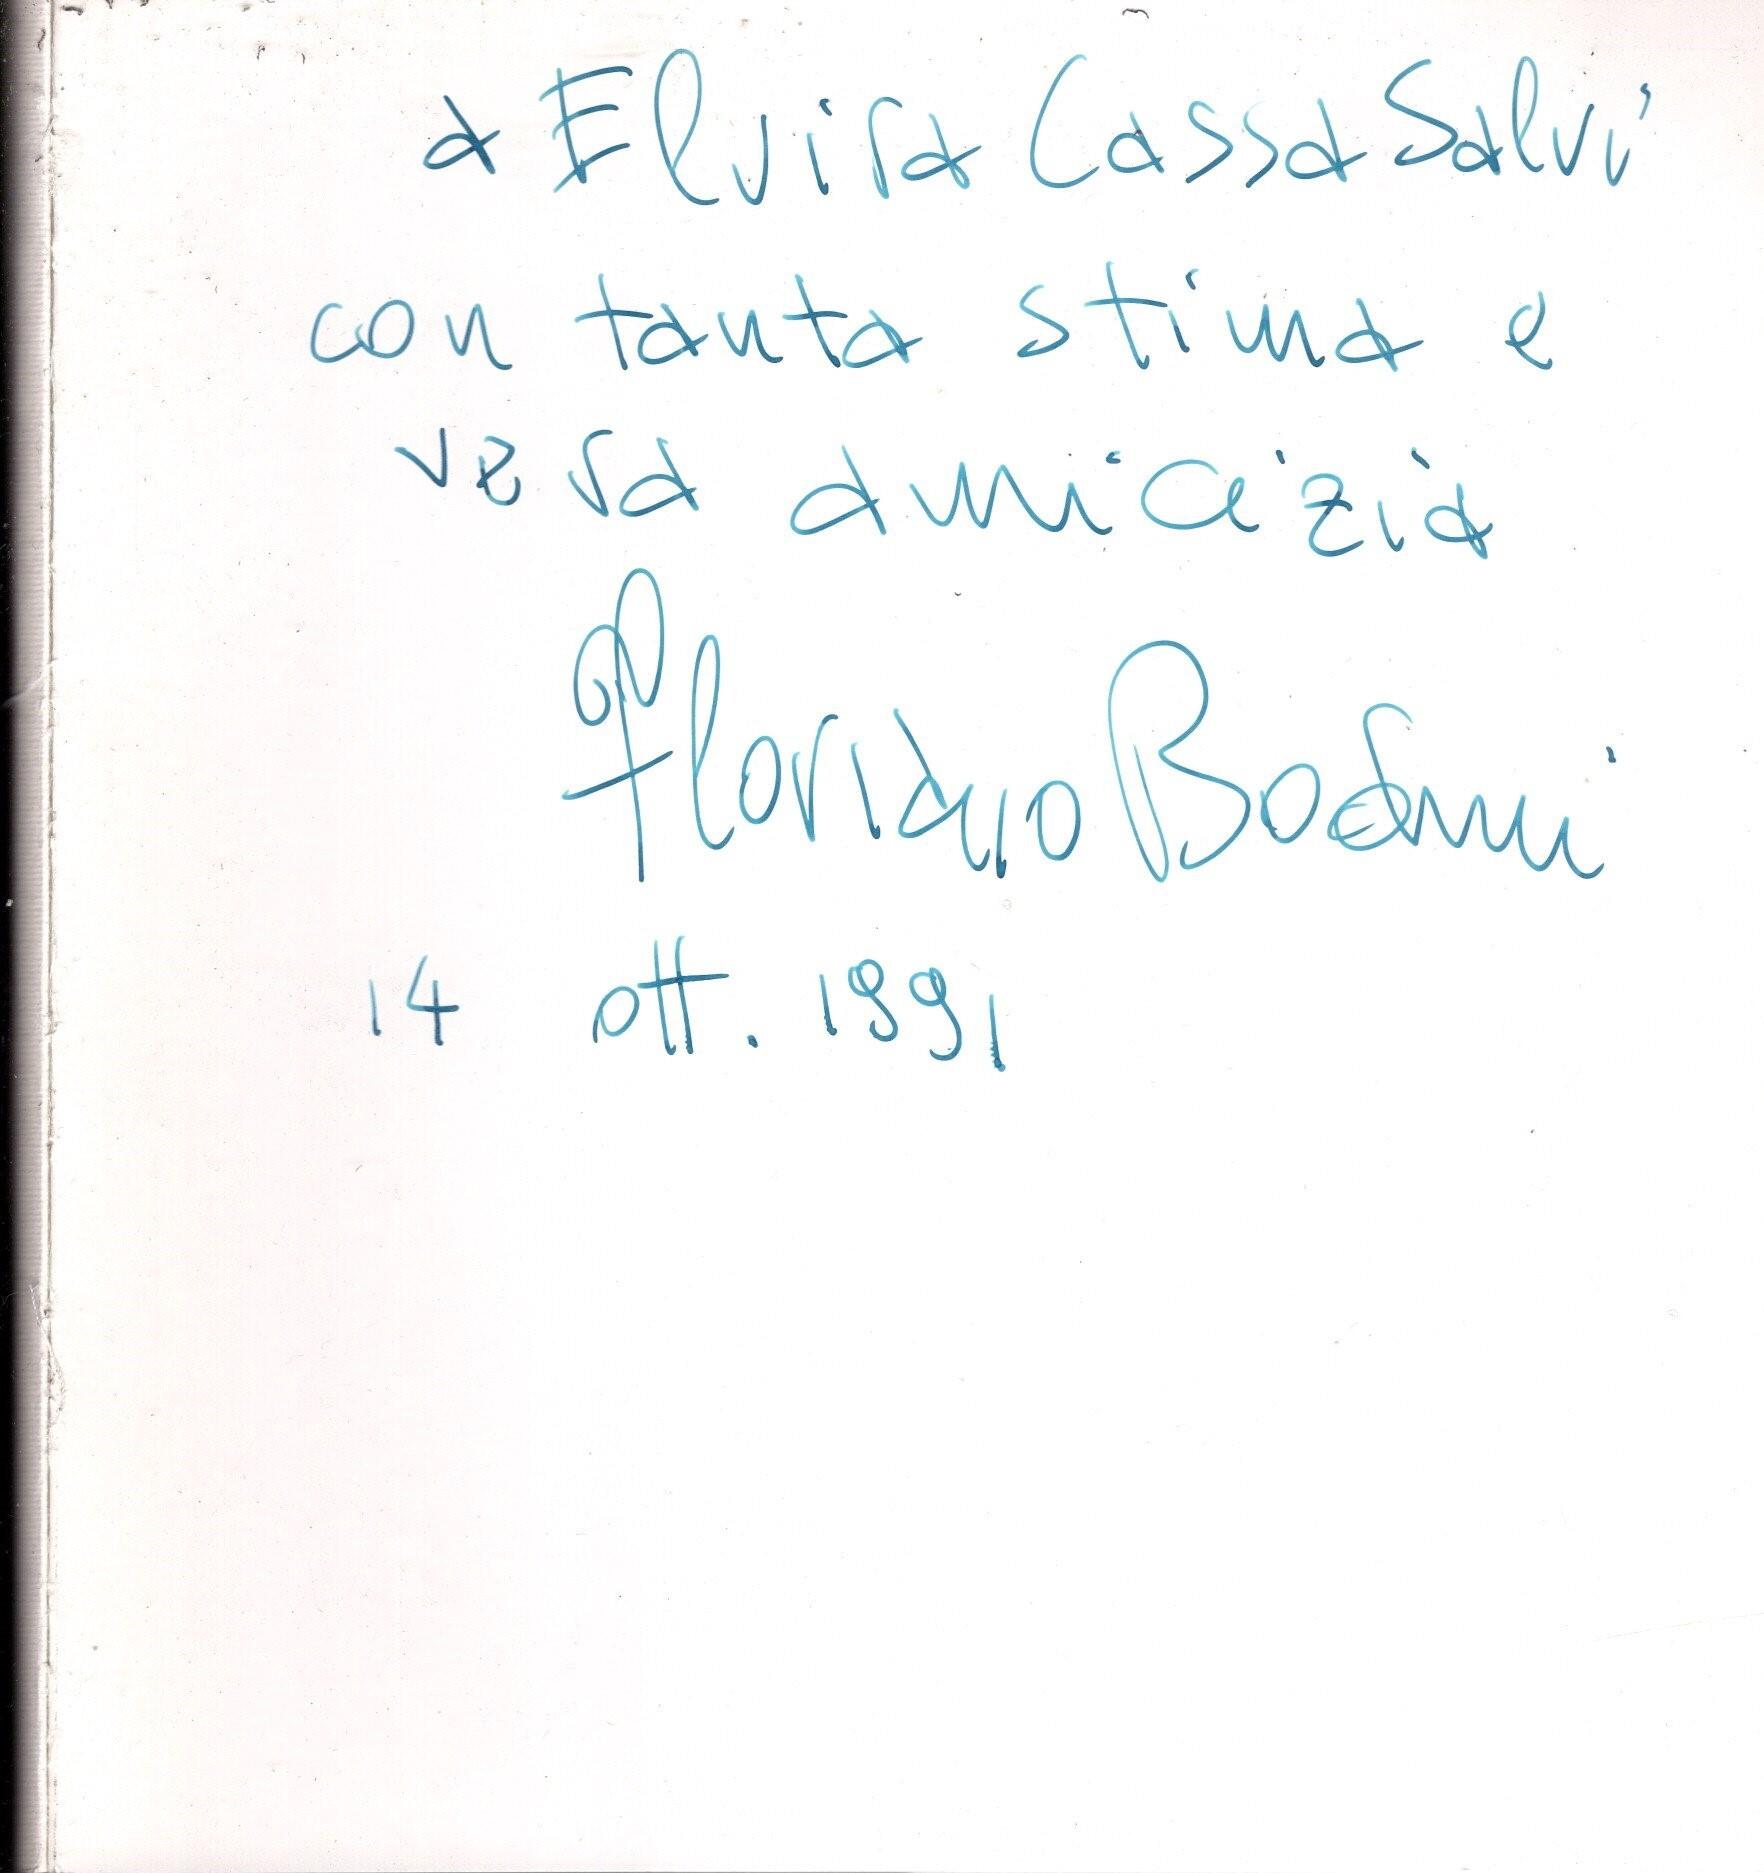 a Elvira Cassa Salvi
con tanta stima e
vera amicizia
Floriano Bodini
14 ott. 1991